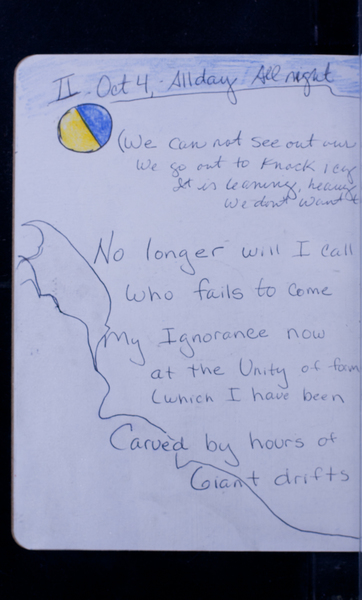 II Oct 4, All day All night
(We can not see out our
We go out to knock icy
It is leaning, heavy
We don't want t
No longer will I call
Who fails to come
My Ignorance now
at the Unity of fam
(which I have been
Carved by hours of
Giant drifts